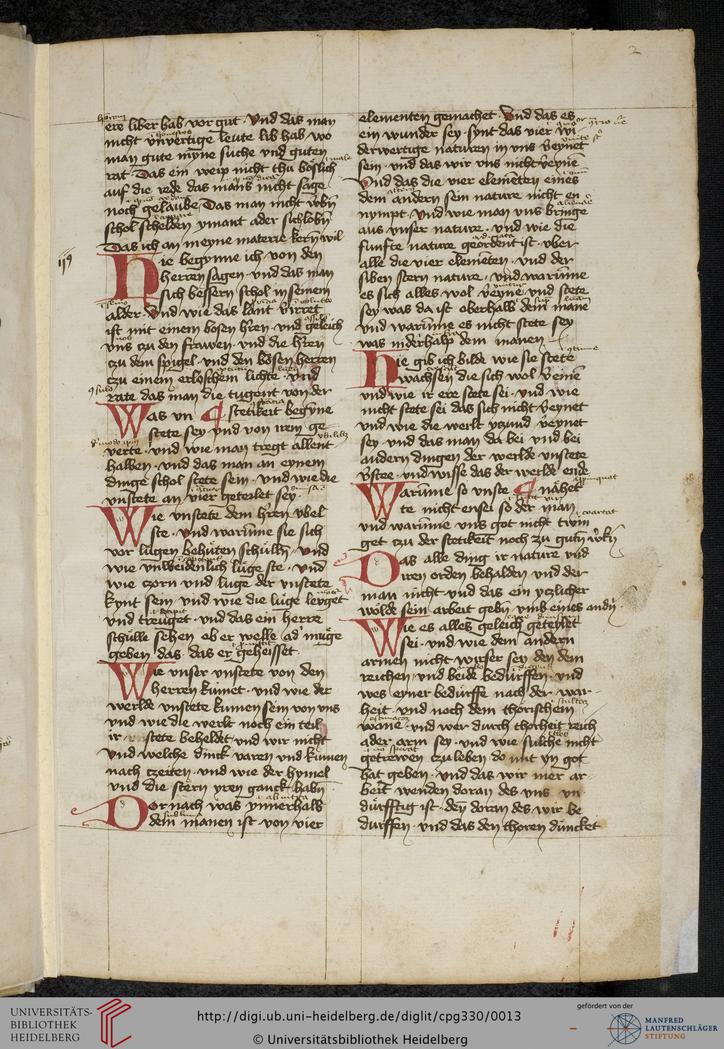 2
ere liber hab vor gut · Vnd das man
nicht vnvertige leute lib hab · wo
man gute mÿne suche vnd guten
rat · Das ein weip nicht thu böslich
auf die rede das mans nicht sage
noch gelaube · Das man nicht
schol schelden ymant ader
Das ich an meyne materie kern wil
Hie begynne ich von den
herren sagen · vnd das man
sich bessern schol in seinem
alder · Vnd wie das lant virret
ist mit einem bosen h'ren · vnd geleich
vns czu den frawen · vnd die h'ren
czu dem spigel · vnd den bösen herren
czu einem erloschem lichte · Vnd
rate das man die tugent von der
stetikeit begÿne
Was vn
stete sey vnd von irem ge
verte · vnd wie man tregt allent
halben · vnd das man an eynem
dinge schol stete sein · vnd wie die
vnstete an vier geteilet sey ·
Wie vnstete dem h'ren vbel
ste · vnd warumme sie sich
vor lugen behüten schulln · vnd
wie vnweidenlich luge ste · vnd
wie czorn vnd luge der vnstete
kynt sein · vnd wie die luge leuget
vnd treuget · vnd das ein herre
schülle sehen ob er welle ad' müge
geben das · das er geheisset ·
Wie vnser vnstete von den
herren kumet · vnd wie der
werlde vnstete kumen sein von vns
vnd wie die werlt noch ein teil
ir stete beheldet vnd wir nicht
vnd welche dinck varen vnd kumen
nach czeiten · vnd wie der hymel
vnd die stern yren ganck habn
Dor nach was ynnerhalb
dem manen ist · von vier
elementen gemachet · Vnd das es
ein wunder sey · synt das vier wi
derwertige naturen in vns v'eynet
sein · vnd das wir vns nicht v'eyne
Vnd das die vier elemeten eines
dem andern sein nature nicht en
nympt · vnd wie man vns bringe
aus vnser nature · vnd wie die
funfte nature geordent ist · vber
alle die vier elemeten · vnd der
siben stern nature · vnd warumme
es sich alles wol v'eyne · vnd stete
sey was da ist oberhalb dem mane
vnd warumme es nicht stete sey
was niderhalp dem manen
Hie gib ich bilde wie sie stete
wachsen die sich wol v'einen
vnd wie ir ere stete sei · vnd wie
nicht stete sei das sich nicht v'eynet
vnd wie die werlt yczund v'eynet
sey · vnd das man da bei vnd bei
andern dingen der werlde vnstete
v'stee · vnd wisse das der werlde ende
nahet
Warumme so vnste
te nicht ensei so der man
vnd warumme vns got nicht twin
get czu der stetikeit noch zu gutn
Das alle ding ir nature vnd
iren orden behalden vnd der
man nicht · vnd das ein yczlicher
wolde sein arbeit gebn vmb eines andn
Wie es alles geleich geteylet
sei · vnd wie dem andern
armen nicht wirser sey den dem
reichen · vnd beide bedürffen · vnd
wes eyner bedürffe nach der war-
heit · vnd noch dem thörischem
wane · vnd wer durch thorheit reich
ader arm sey · vnd wie sulche nicht
getrewen czu leben do mit yn got
hat geben · vnd das wir mer ar-
beit wenden doran des vns vn
dürfftig ist · den doran des wir be
durffen · vnd das den thoren düncket
UNIVERSITÄTS-
BIBLIOTHEK
HEIDELBERG
http://digi.ub.uni-heidelberg.de/diglit/cpg330/0013
© Universitätsbibliothek Heidelberg
gefördert von der
MANFRED
LAUTENSCHLÄGER
STIFTUNG